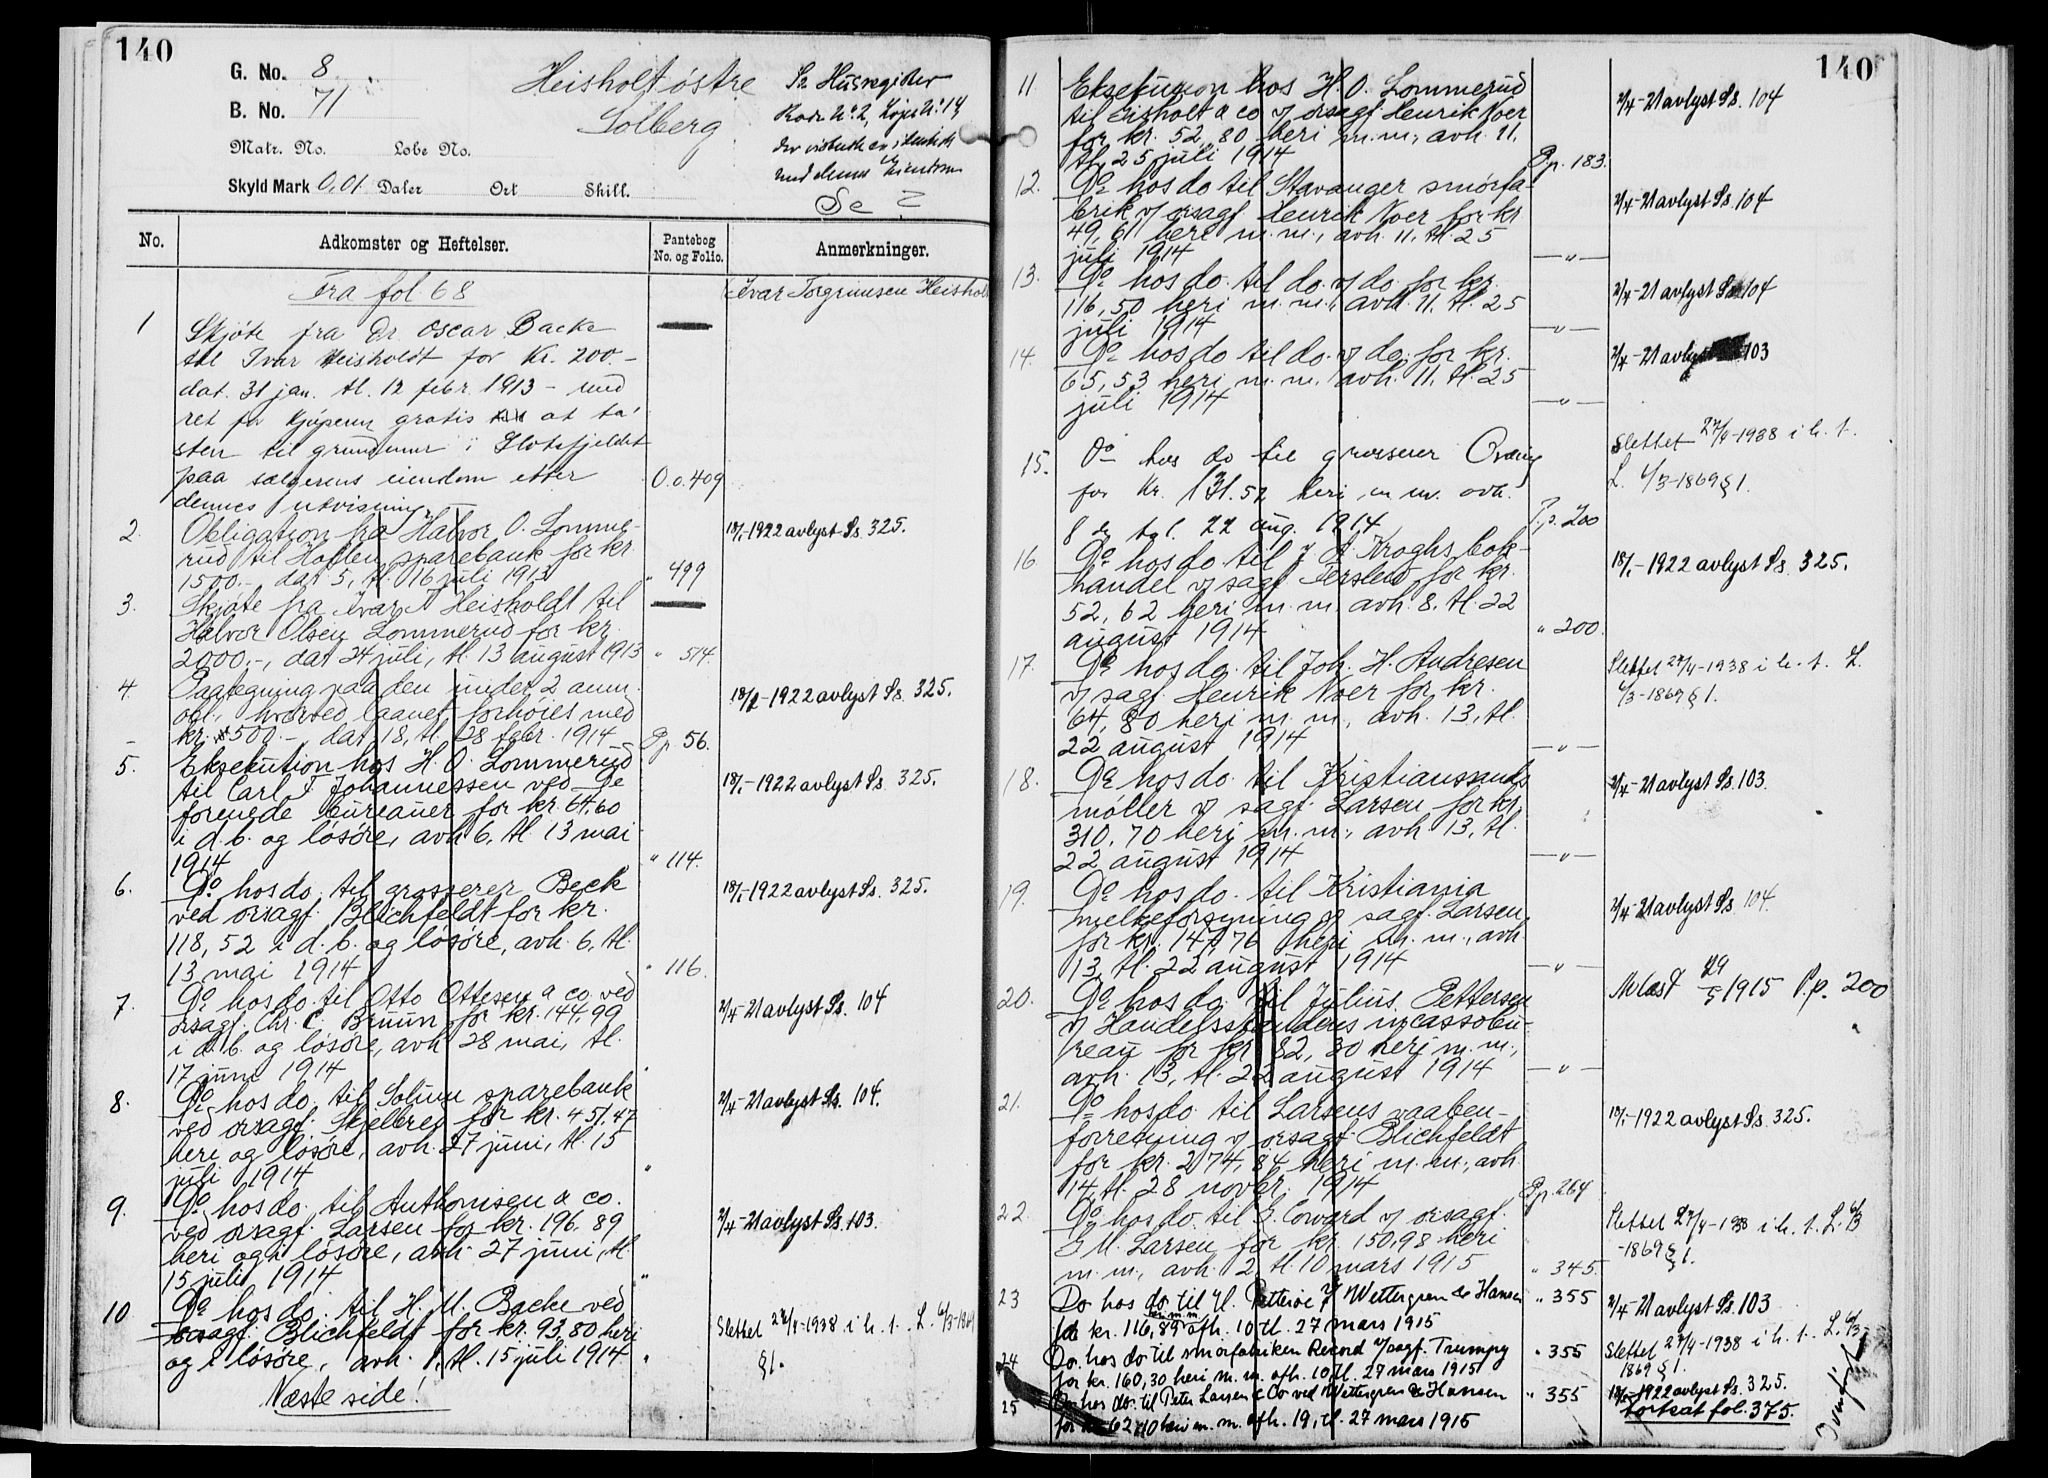 140
G. No. 8
B. No. 71
Matr. No. Løbe No.
Skyld Mark 0,01 Daler Ort Skill.
Heisholt østre
Solberg
Se Husregister
Rode No 2, Løpe No 14
der visbuth er identisk
med denne Eiendom
Se
No. Adkomster og Heftelser. Pantebog No. og Folio. Anmerkninger.
Fra fol 68 Ivar Torgrimsen Heishol
1 Skjøte fra Dr. Oscar Backe
til Ivar Heisholdt for Kr. 200-
dat. 31 jan. tl. 12 febr. 1913 - med
ret for kjøperen gratis at ta
sten til grundmur i Slotsfjeldet
paa sælgerens eiendom etter
dennes utvisning. O.o. 409
2. Obligation fra Halvor O. Lomme-
rud til Hollen sparebank for kr
1500.-, dat 5, tl. 16 juli 1913 " 499 18/1-1922 avlyst Ss. 325.
3. Skjøte fra Ivar T Heisholdt til
Halvor Olsen Lommerud for kr.
2000.-, dat 24 juli, tl. 13 august 1913 " 514.
4. Paategning paa den under 2 anm.
obl., hvorved laanet forhøies med
kr. 500.-, dat. 18, tl. 28 febr. 1914 Pp 56. 18/1-1922 avlyst Ss. 325.
5. Eksekution hos H. O. Lommerud
til Carl F Johannessen ved De
forenede bureauer for kr. 64.60
i d. b. og løsøre, avh 6, tl 13 mai
1914 " 114. 18/1-1922 avlyst Ss. 325.
6. Do. hos do. til grosserer Beck
ved orsagf. Blichfeldt for kr.
118,52 i d. b. og løsøre, avh. 6, tl.
13 mai 1914 " 116. 18/1-1922 avlyst Ss. 325.
7. Do hos do. til Otto Ottesen a co. ved
orsagf. Chr. C. Bruun for kr. 144,99
i d. b. og løsøre, avh 28 mai, tl.
17 juni 1914 " 2/4-21 avlyst Ss. 104
8. Do hos do. til Solum sparebank
ved orsagf. Skjelbred for kr. 451.47
heri og løsøre, avh. 27 juni, tl. 15
juli 1914 " 2/4-21 avlyst Ss. 104.
9. Do hos do. til Anthonisen a co.
ved orsagf. Larsen for kr. 196,89
heri og i løsøre, avh. 27 juni, tl.
15 juli 1914 " 2/4-21 avlyst Ss. 103.
10 Do hos do. til H. M. Backe ved
orsagf. Blichfeldt for kr. 93,80 heri
og i løsøre, avh. 1, tl. 15 juli 1914. " Slettet 27/4-1938 i h. t. L. 6/3-1869
§ 1.
Næste side!
140
11 Eksekution hos H. O. Lommerud
til Eisholt a co v/ orsagf Henrik Noer
for kr. 52,80 heri m.m., avh. 11.
tl. 25 juli 1914 Pp. 183. 2/4-21 avlyst Ss. 104
12. Do hos do til Stavanger smørfa-
brik v/ orsagf. Henrik Noer for kr
49,61 heri m.m., avh. 11, tl. 25
juli 1914 —"— 2/4-21 avlyst Ss. 104
13. Do hos do. til do. v/ do. for kr.
116,50 heri m.m., avh. 11. tl. 25
juli 1914 —"— 2/4-21 avlyst Ss 104
14. Do hos do til do. v/ do. for kr.
65,53 heri m.m. avh. 11, tl. 25
juli 1914 —"— 2/4-21 avlyst 103
15. Do hos do til grosserer
for Kr. 131.52 heri m m. avh.
8 dg tgl. 22 aug. 1914 P.p. 200 Slettet 27/4-1938 i h. t.
L. 6/3-1869 § 1.
16. Do hos do til J. A. Kroghs bok-
handel v/ sagf Terslew for kr.
52,62 heri m.m. avh. 8. tl. 22
august 1914 " 200. 18/1-1922 avlyst Ss. 325.
17. Do hos do. til Joh. H. Andresen
v/ sagf. Henrik Noer for kr.
64,80 heri m.m., avh. 13, tl.
22 august 1914 —"— Slettet 27/4-1938 i h. t. L.
6/3-1869 § 1.
18. Do hos do. til Kristianssands
møller v/ sagf. Larsen for kr.
310,70 heri m.m., avh. 13, tl.
22 august 1914 —"— 2/4-21 avlyst Ss. 103.
19. Do hos do. til Kristiania
melkeforsyning v/ sagf. Larsen
for kr. 147,76 heri m.m., avh
13, tl. 22 august 1914 —"— 2/4-21 avlyst Ss. 104.
20. Do hos do. til Julius Pettersen
v/ Handelsstandens incassobu-
reau for kr 82,30 heri m.m.,
avh. 13, tl. 22 august 1914 —"— Avlæst 29/5 1915 P.p. 200
21. Do hos do. til Larsens vaaben-
forretning v/ orsagf. Blichfeldt
for kr. 274,84 heri m.m., avh.
14 tl. 28 novbr. 1914 Pp. 264 18/1-1922 avlyst Ss. 325.
22. Do hos do. til E. Coward v/ orsagf.
G M. Larsen for kr. 150,98 heri
m.m., avh. 2, tl. 10 mars 1915 " 345. Slettet 27/4-1938 i h. t. L. 6/3
-1869 § 1.
23 Do hos do til H. Petterøe v/ Wettergren & Hansen
for kr. 116,89 heri m m afh. 10 tl. 27 mars 1915 " 355 2/4-21 avlyst Ss. 103
24 Do. hos do til smørfabriken Record v/sagf. Trumpy
for kr. 160,30 heri m. m. afh. 10 tl. 27 mars 1915 " 355 Slettet 27/4-1938 i h. t. L. 6/3-
1869 § 1.
25 Do. hos do. til Peter Larsen & Co ved Wettergren & Hansen
for kr 62,10 heri m. m. afh. 19, tl. 27 mars 1915 " 355 18/1-1922 avlyst Ss. 325.
Fortsat fol. 375.